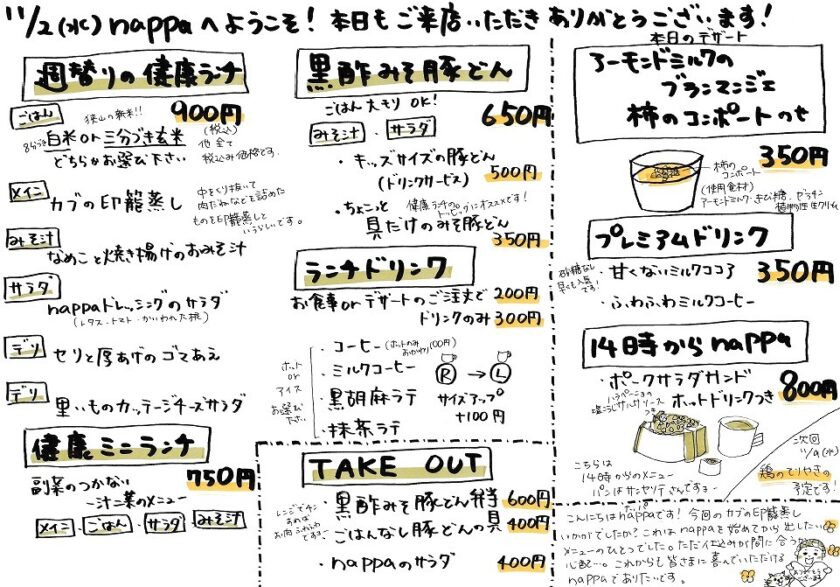 11/2(水) nappaへようこそ! 本日もご来店いただきありがとうございます!
週替りの健康ランチ
900円
ごはん
狭山の新米!!
8分づき
白米or三分づき玄米
どちらかお選び下さい
(税込)
他全て
税込み価格です.
メイン
カブの印籠蒸し
中をくり抜いて
肉だねなどを詰めた
ものを印籠蒸しと
いうらしいです。
みそ汁
なめこと焼き揚げのおみそ汁
サラダ
nappaドレッシングのサラダ
(レタス・トマト・かいわれ大根)
デリ
セリと厚あげのゴマあえ
デリ
里いものカッテージチーズサラダ
健康ミニランチ
750円
副菜のつかない
一汁二菜のメニュー
メイン・ごはん・サラダ・みそ汁
黒酢みそ豚どん
ごはん大もりOK!
650円
みそ汁・サラダ
・キッズサイズの豚どん
(ドリンクサービス)
500円
・ちょこっと
具だけのみそ豚どん
健康ランチの
トッピングにオススメです!
350円
ランチドリンク
お食事orデザートのご注文で 200円
ドリンクのみ 300円
ホット
or
アイス
お選び
下さい
・コーヒー(ホットのみ
おかわり100円)
・ミルクコーヒー
・黒胡麻ラテ
・抹茶ラテ
R → L
サイズアップ
+100円
TAKE OUT
レンジでチン
すれば
お肉ふわふわ
です。
・黒酢みそ豚どん弁当 600円
・ごはんなし豚どんの具 400円
・nappaのサラダ 400円
本日のデザート
アーモンドミルクの
ブランマンジェ
柿のコンポートのせ
350円
柿の
コンポート
(使用食材)
アーモンドミルク・きび糖・ゼラチン
植物性生クリーム
プレミアムドリンク
砂糖なし
・甘くないミルクココア 350円
・ふわふわミルクコーヒー
14時からnappa
・ポークサラダサンド
ホットドリンクつき 800円
こちらは
14時からのメニュー
パンはサンセリテさんですよー
次回
11/9(水)
鶏のてりやき。
予定です!
こんにちはnappaです! 今回のカブの印籠蒸し
いかがでしたか? これはnappaを始めてから出したい
メニューのひとつでした。ただ仕込みが間に合うか
心配…。これからも皆さまに喜んでいただける
nappaでありたいです。